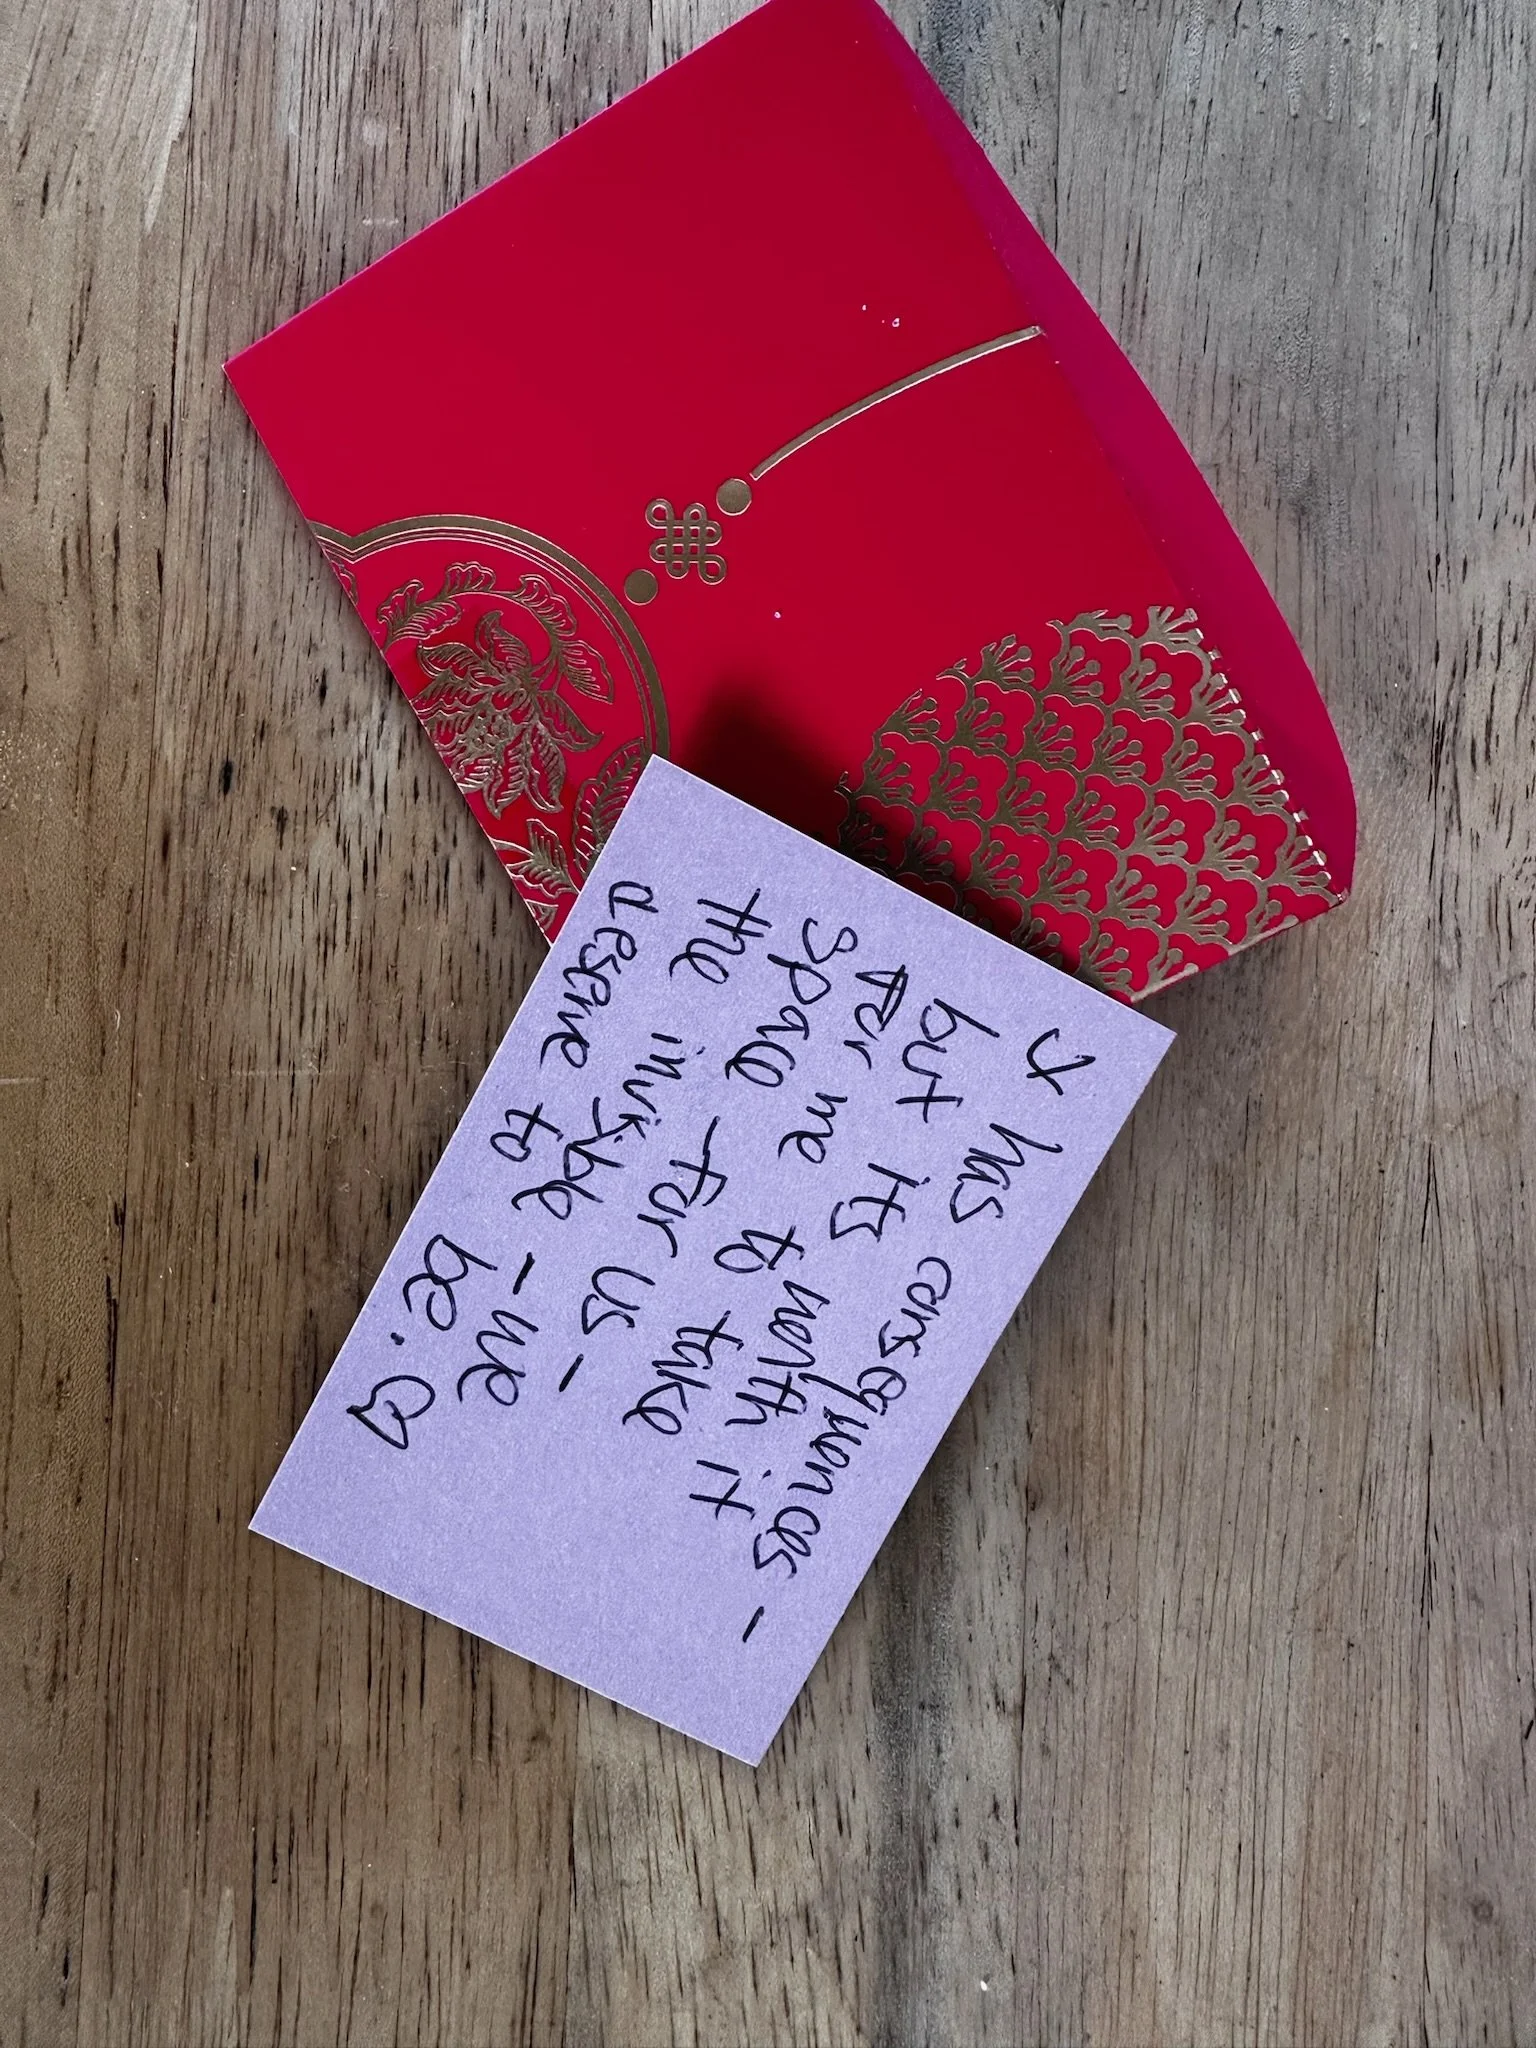 x has consequences -
but its worth it
for me to take
space - for us -
the invisible - we
deserve to be. ♡